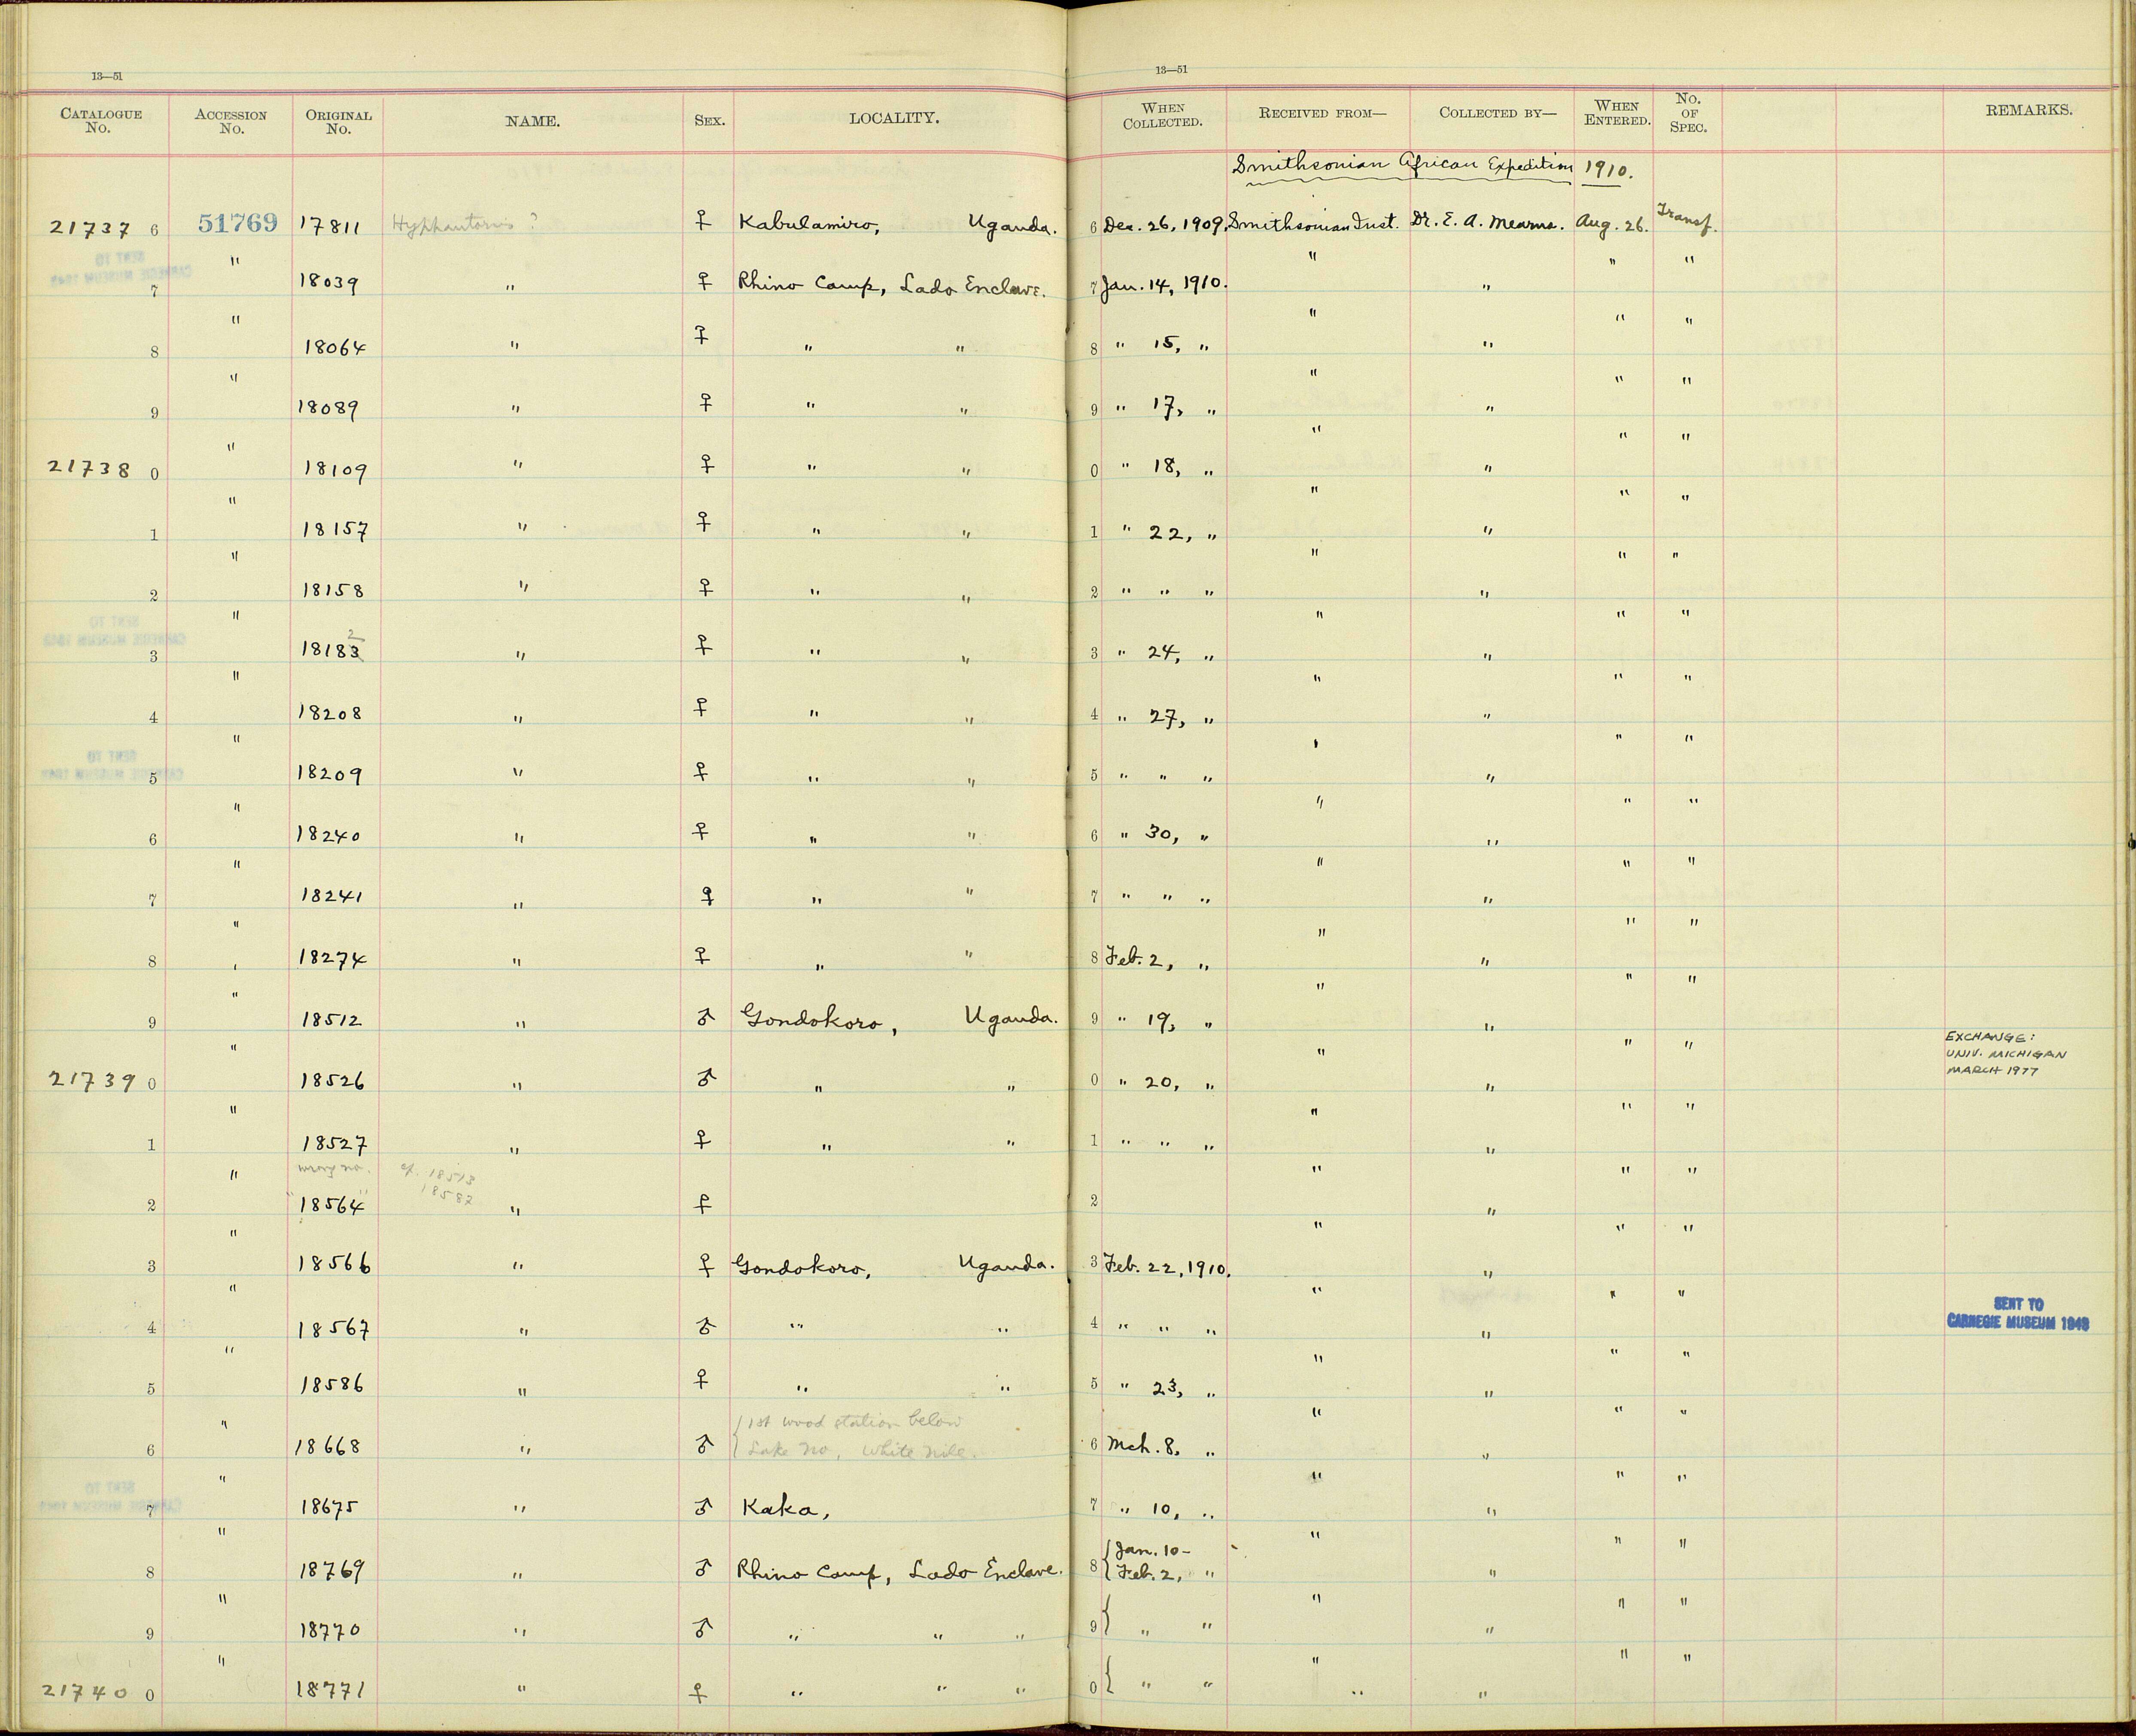 13—51
13—51
CATALOGUE No. ACCESSION No. ORIGINAL No. NAME. SEX. LOCALITY. WHEN COLLECTED. RECEIVED FROM— COLLECTED BY— WHEN ENTERED. No. OF SPEC. REMARKS.
Smithsonian African Expedition 1910.
21737 6 51769 17811 Hyphantornis ? ♀ Kabulamiro, Uganda. 6 Dec. 26, 1909, Smithsonian Inst. Dr. E. A. Mearns. Aug. 26. Transf.
7 " 18039 " ♀ Rhino Camp, Lado Enclave. 7 Jan. 14, 1910. " " " "
8 " 18064 " ♀ " " 8 " 15, " " " " "
9 " 18089 " ♀ " " 9 " 17, " " " " "
21738 0 " 18109 " ♀ " " 0 " 18, " " " " "
1 " 18157 " ♀ " " 1 " 22, " " " " "
2 " 18158 " ♀ " " 2 " " " " " " "
3 " 18183 2 " ♀ " " 3 " 24, " " " " "
4 " 18208 " ♀ " " 4 " 27, " " " " "
5 " 18209 " ♀ " " 5 " " " " " " "
6 " 18240 " ♀ " " 6 " 30, " " " " "
7 " 18241 " ♀ " " 7 " " " " " " "
8 " 18274 " ♀ " " 8 Feb. 2, " " " " "
9 " 18512 " ♂ Gondokoro, Uganda. 9 " 19, " " " " "
EXCHANGE:
UNIV. MICHIGAN
MARCH 1977
21739 0 " 18526 " ♂ " " 0 " 20, " " " " "
1 " 18527 " ♀ " " 1 " " " " " " "
wrong no. cf. 18513
18587
2 " "18564" " ♀ 2 " " " "
3 " 18566 " ♀ Gondokoro, Uganda. 3 Feb. 22, 1910. " " " "
SENT TO
CARNEGIE MUSEUM 1943
4 " 18567 " ♂ " " 4 " " " " " " "
5 " 18586 " ♀ " " 5 " 23, " " " " "
{1st wood station below
6 " 18668 " ♂ Lake No, White Nile. 6 Mch. 8, " " " " "
7 " 18675 " ♂ Kaka, 7 " 10, " " " " "
{Jan. 10-
8 " 18769 " ♂ Rhino Camp, Lado Enclave. 8 Feb. 2, " " " " "
9 " 18770 " ♂ " " " 9 { " " " " " "
21740 0 " 18771 " ♀ " " " 0 { " " " " " "